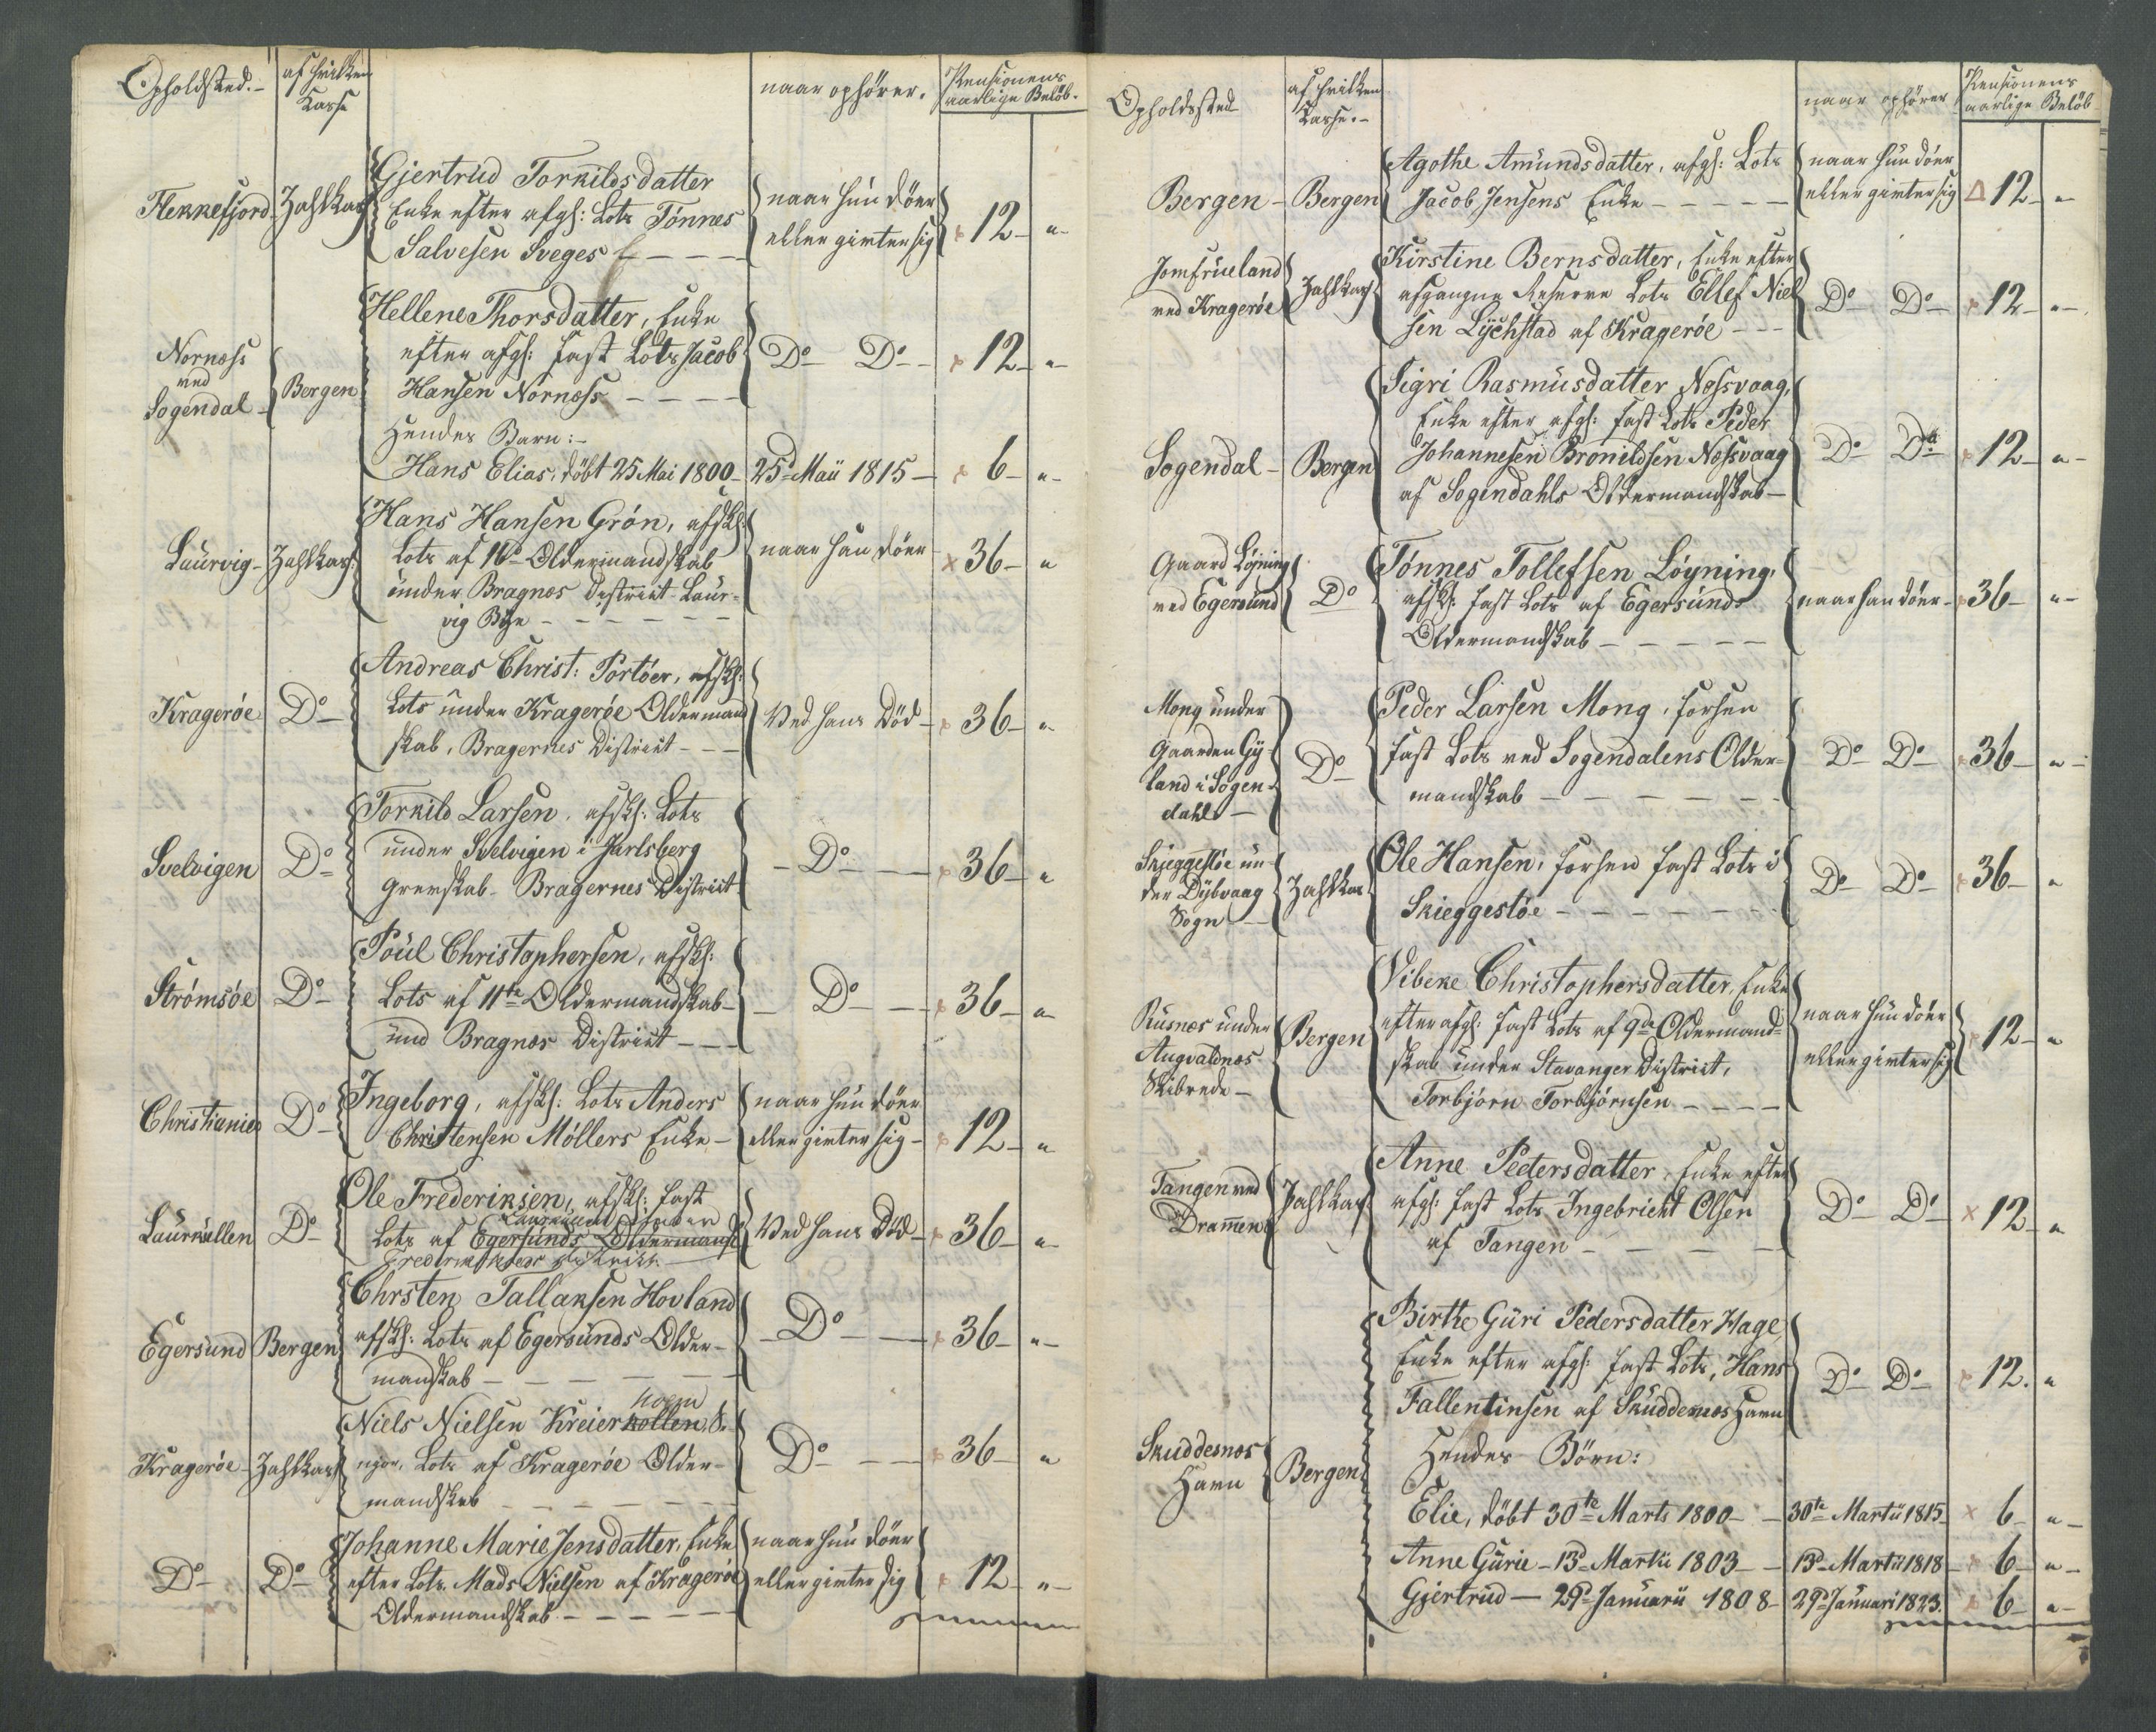 Opholdsted.-
af hvilken
Kasse
naar ophører.
Pensionens
aarlige Beløb.
Flekkefjord
Zahlkass
Gjertrud Torkildsdatter
Enke efter afg: Lots Tønnes
Salvesen Sveges - - - -
naar hun døer
eller givter sig
12 - "-
Nornæss
ved
Sogendal -
Bergen
Hellene Thorsdatter, Enke
efter afg: fast Lots Jacob
Hansen Nornæss - - - -
Do Do -
12 - "-
Hendes Barn:-
Hans Elias, døbt 25 Mai 1800 -
25d Maii 1815 -
6 - "-
Laurvig -
Zahlkass:
Hans Hansen Grøn, afsk:
Lots af 16d Oldermandskab
under Bragnæs District - Laur-
vig Bye - - - - - -
naar han døer
× 36 - "
Kragerøe
Do -
Andreas Christ: Portøer, afsk:
Lots under Kragerøe Oldermand
skab, Bragernes District - - -
Ved hans Død -
36 - "-
Svelvigen
Do -
Torkild Larsen, afsk: Lots
under Svelvigen i Jarlsberg
Grevskab - Bragernes District
- Do - -
36 - "
Strømsøe
Do -
Poul Christophersen, afsk:
Lots af 11te Oldermandskab -
und Bragnæs District - - -
- Do - -
36 - "-
Christiania
Do -
Ingeborg, afsk: Lots Anders
Christensen Møllers Enke -
naar hun døer
eller givter sig -
12 - "
Laurkullen
Do -
Ole Frederiksen, afsk: fast
Laurkullen under
Lots af Egersunds Oldermands
Frederiksteds District.
Ved hans Død -
36 - "-
Egersund
Bergen
Chrsten Tallaksen Hovland
afsk: Lots af Egersunds Older-
manskab - - - - - -
- Do - -
36 - "-
Kragerøe -
Zahlkass
holm
Niels Nielsen Kreierkollen, S.
Lots af Kragerøe Older-
mandskab - - - - - -
Do - -
36 - "
Do -
Do -
Johanne Marie Jensdatter, Enke
efter Lots Mads Nielsen af Kragerøe
Oldermandskab - - - - -
naar hun døer
eller givter sig
12 - "-
Opholdssted
af hvilken
Kasse.-
naar ophører
Pensionens
aarlige Beløb
Bergen -
Bergen
Agothe Amundsdatter, afg: Lots
Jacob Jensens Enke - - - - -
naar hun døer
eller givter sig
Δ 12 - "-
Jomfrueland
ved Kragerøe
Zahlkass
Kirstine Bernsdatter, Enke efter
afgangne Reserve Lots Ellef Niel
sen Lychstad af Kragerøe - - -
Do Do
12 - "-
Sogendal -
Bergen
Sigri Rasmusdatter Nossvaag,
Enke efter afg: fast Lots Peder
Johannesen Bronildsen Nossvaag
af Sogendahls Oldermandskab -
Do Do
12 - "-
Gaard Løyning
ved Egersund
Do
Tønnes Tollefsen Løyning,
afsk: fast Lots af Egersunds
Oldermandskab - - - - -
naar han døer -
36 - "-
Mong under
Gaarden Gy-
land i Sogen-
dahl -
Do -
Peder Larsen Mong, forhen
fast Lots ved Sogendalens Older-
mandskab - - - - - -
Do Do
36 - "-
Skieggestøe un-
der Dybvaag
Sogn -
Zahlkas
Ole Hansen, forhen fast Lots i
Skieggestøe - - - - - - -
Do Do
36 - "
Rusnæs under
Augvaldnæs
Skibrede -
Bergen
Vibeke Christophersdatter, Enke
efter afg: fast Lots af 9de Oldermand-
skab under Stavanger District,
Torbjørn Torbjørnsen - - - -
naar hun døer
eller givter sig
12 - "
Tangen ved
Drammen
Zahlkas
Anne Pedersdatter, Enke efter
afg: fast Lots Ingebricht Olsen
af Tangen - - - - -
Do Do
× 12 - "
Skuddesnæs
Havn
Bergen
Birthe Guri Pedersdatter Hage
Enke efter afg: fast Lots, Hans
Fallentinsen af Skuddesnæs Havn
Do Do
12. "
Hendes Børn:
Elie, døbt 30te Marts 1800 -
30te Martii 1815
× 6 - "-
Anne Gurie - 13d Martii 1803 -
13d Martii 1818 -
6 - "-
Gjertrud - 29d Januarii 1808 -
29d Januari 1823.
6 - "-